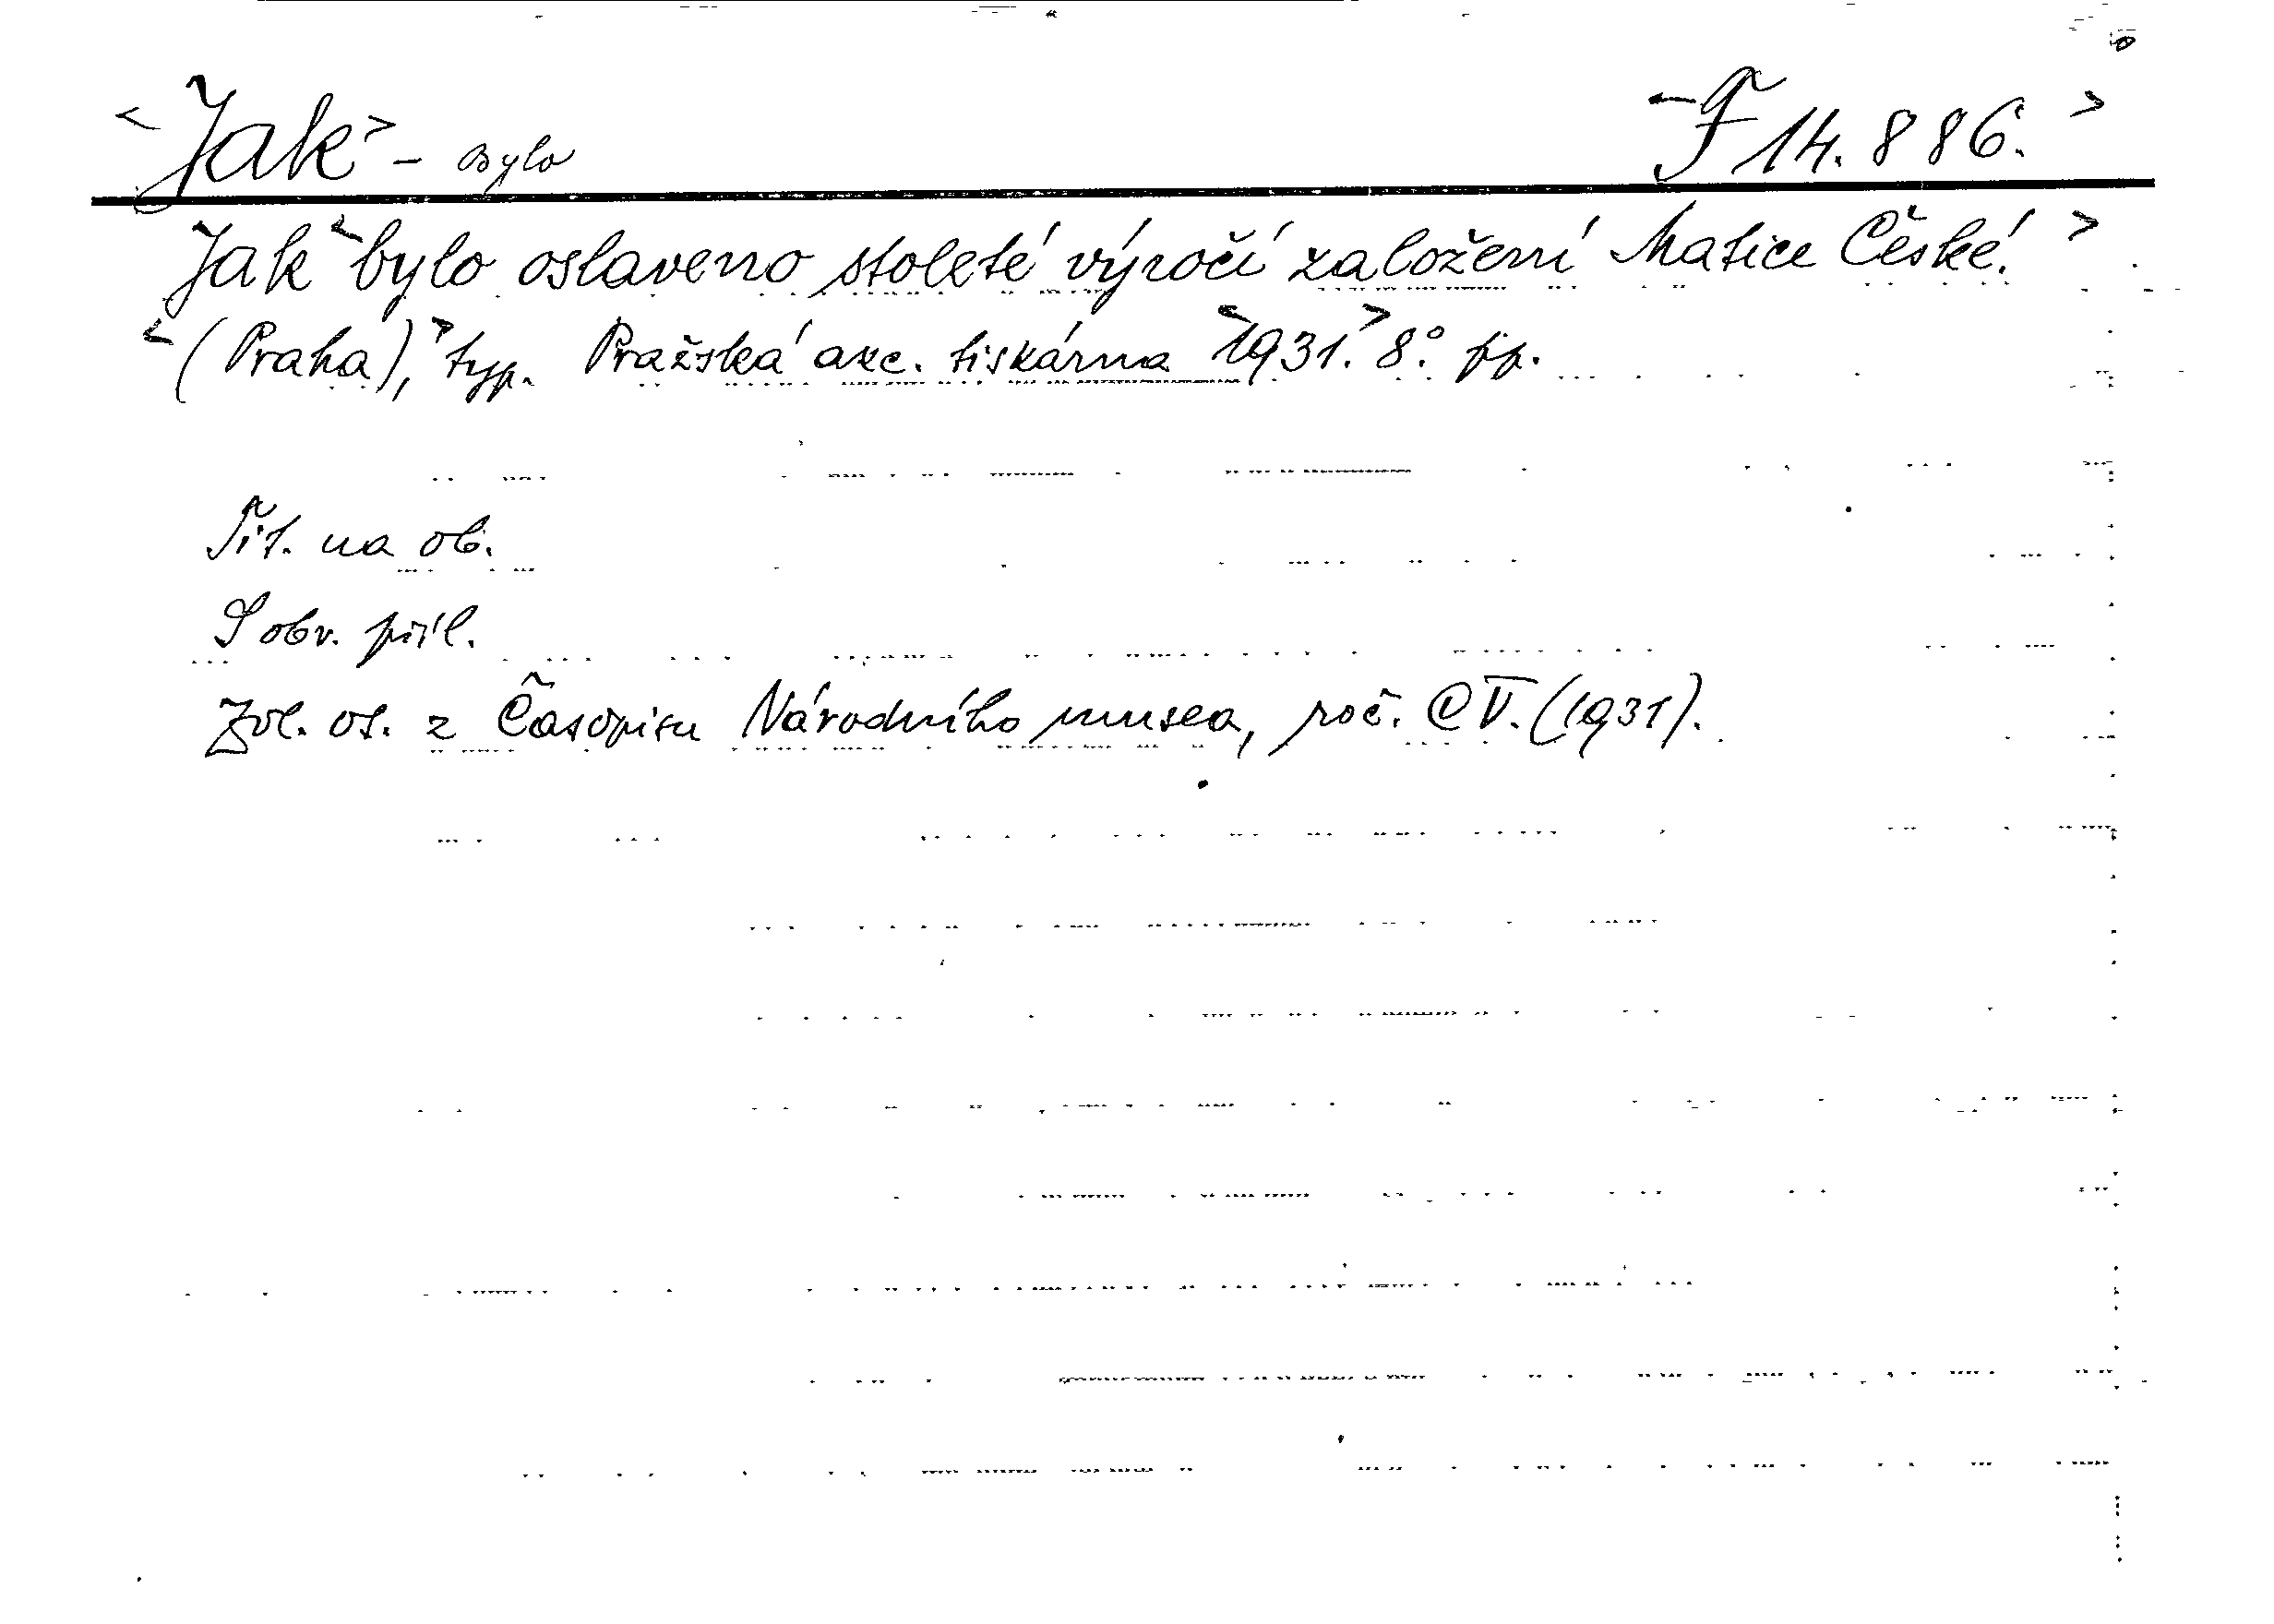 <Jak> - bylo <F 14.886.>
Jak <bylo oslaveno stoleté výročí založení Matice České.>
<(Praha),> typ. Pražská akc. tiskárna <1931.> 8° pp.
Tit. na ob.
S obr. příl.
Zvl. ot. z Časopisu Národního musea, roč. CV. (1931).